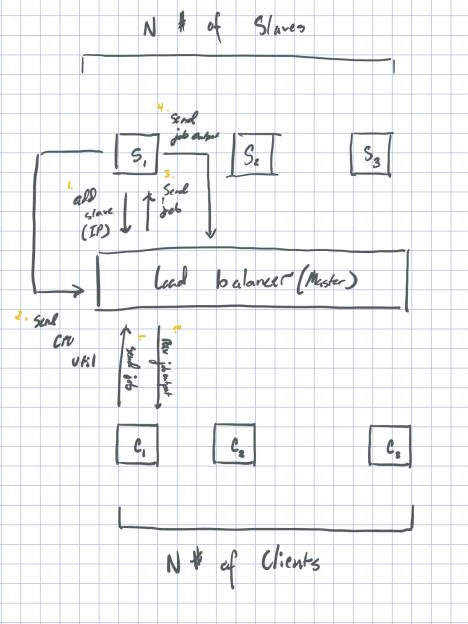 N # of Slaves
4.
Send
job output
S1
S2
S3
1.
add
slave
(IP)
3.
Send
job
Load balancer (Master)
2. Send
CPU
util
send job
job output
C1
C2
C3
N # of Clients